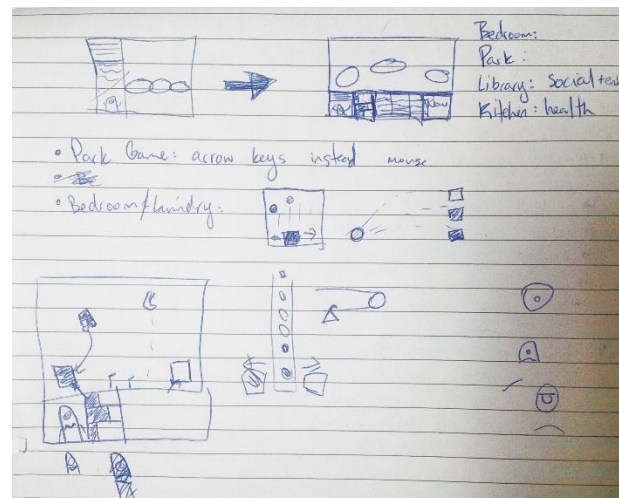 Bedroom:
Park:
Library: Social
Kitchen: health
• Park Game: arrow keys instead mouse
• Bedroom/Laundry: